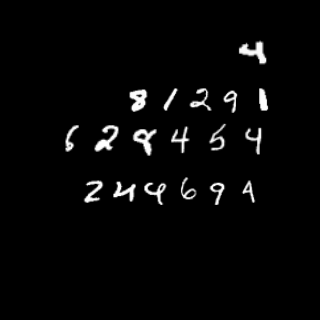 4
81291
628454
244694